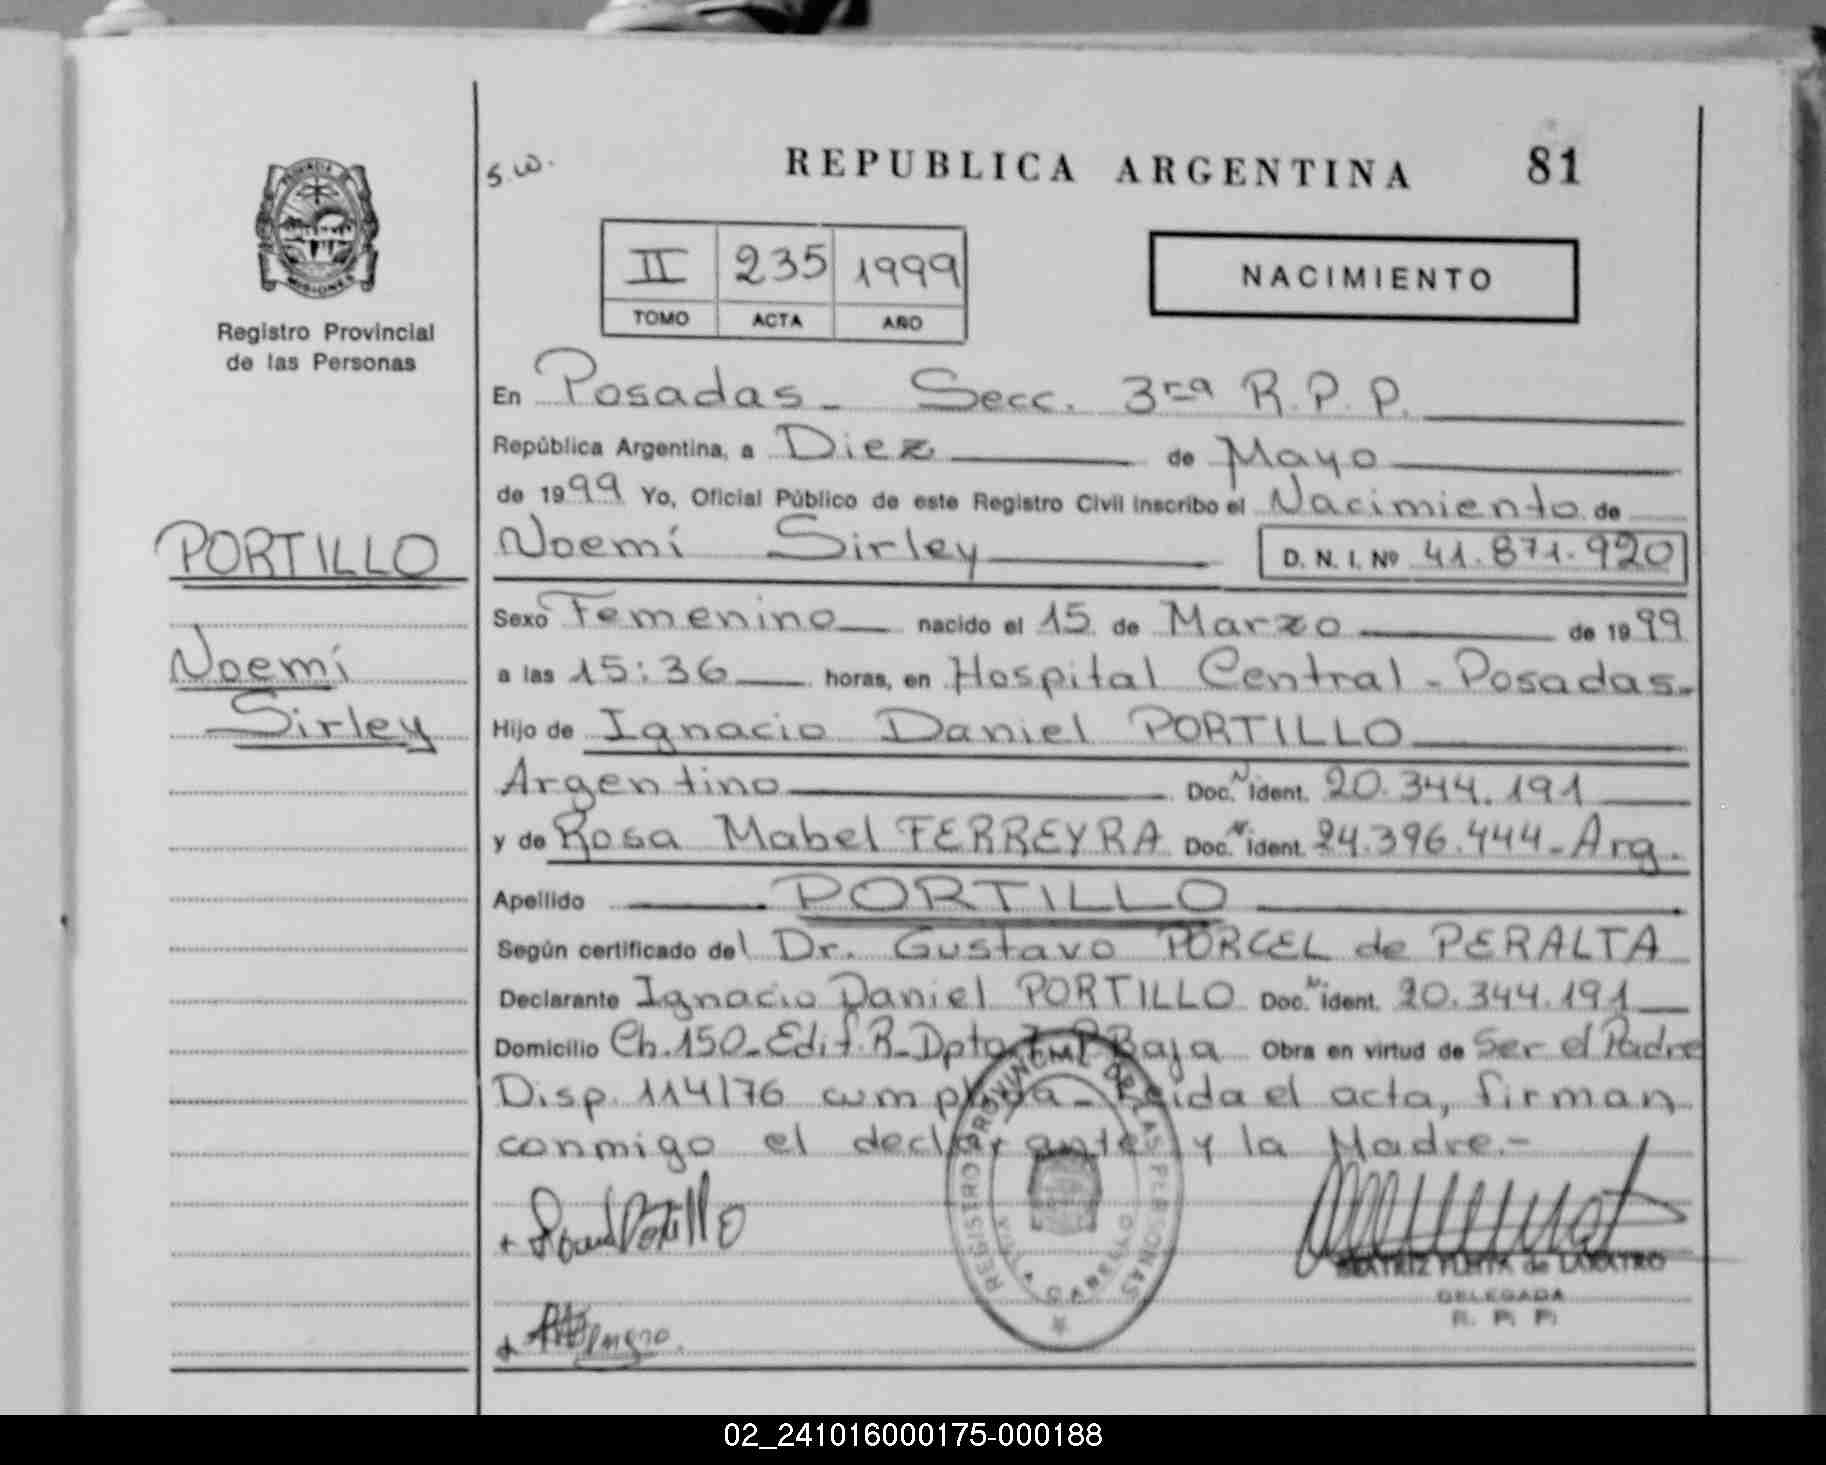 PROVINCIA DE
MISIONES
Registro Provincial
de las Personas
PORTILLO
Noemí
Sirley
s.w.
REPUBLICA ARGENTINA 81
II 235 1999
TOMO ACTA AÑO
NACIMIENTO
En Posadas - Secc. 3ra R.P.P.
República Argentina, a Diez de Mayo
de 1999 Yo, Oficial Público de este Registro Civil inscribo el Nacimiento de
Noemí Sirley D. N. I. Nº 41.871.920
Sexo Femenino nacido el 15 de Marzo de 1999
a las 15:36 horas, en Hospital Central - Posadas-
Hijo de Ignacio Daniel PORTILLO
Argentino Doc. N ident. 20.344.191
y de Rosa Mabel FERREYRA Doc. N ident. 24.396.444-Arg.
Apellido PORTILLO
Según certificado del Dr. Gustavo PORCEL de PERALTA
Declarante Ignacio Daniel PORTILLO Doc. N ident. 20.344.191
Domicilio Ch.150-Edif.R-Dpto P.Baja Obra en virtud de Ser el Padre
Disp. 114/76 cumplida - Leida el acta, firman
conmigo el declarante y la Madre.-
REGISTRO PROVINCIAL DE LAS PERSONAS
Portillo
BEATRIZ de
DELEGADA
R. P. P.
02_241016000175-000188